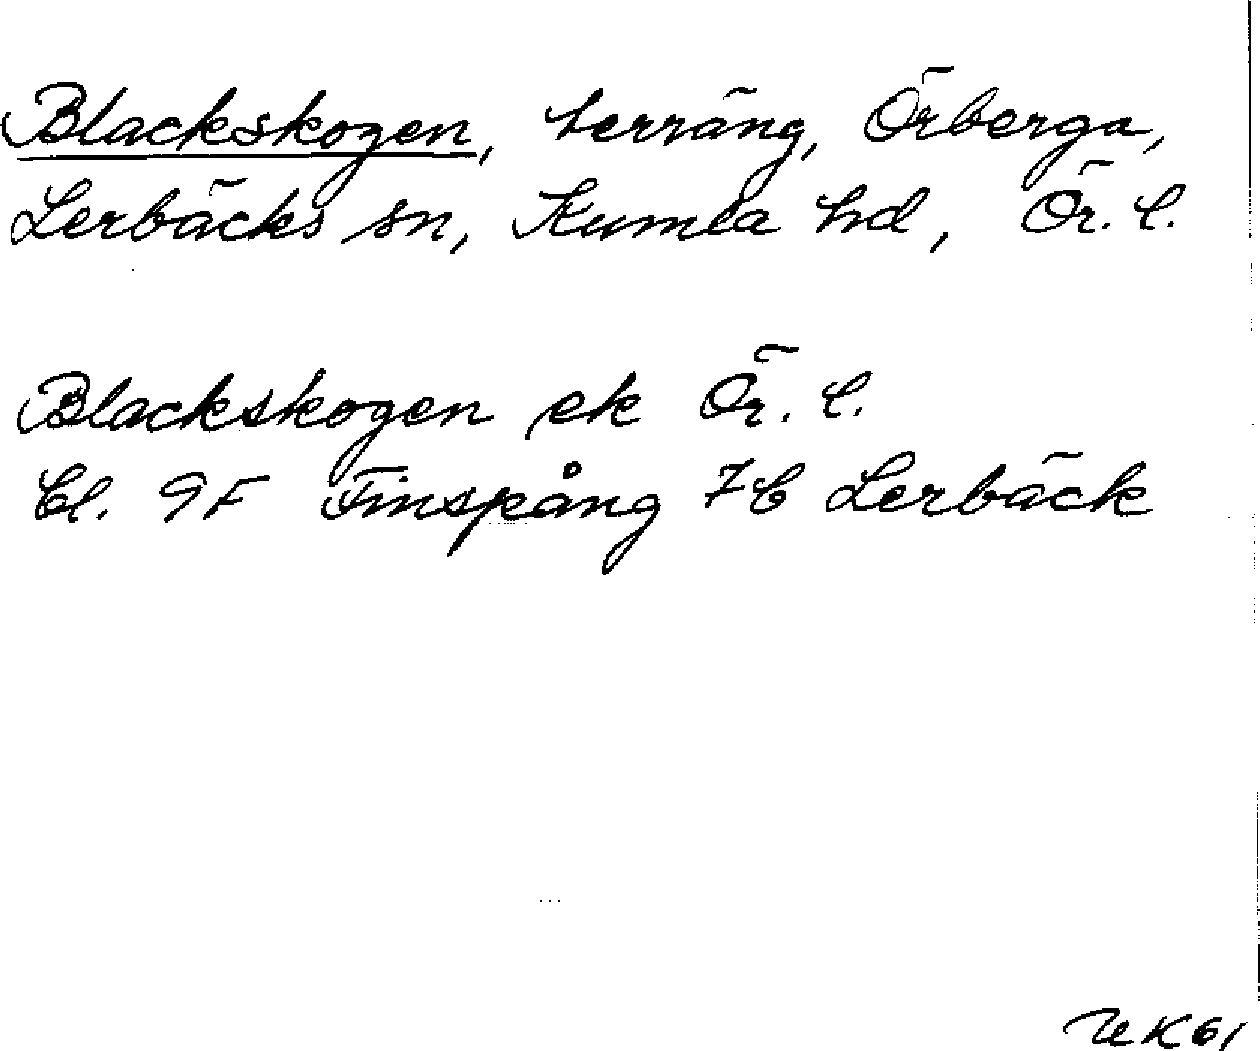 Blackskogen, terräng, Örberga,
Lerbäcks sn, Kumla hd, Ör. l.
Blackskogen ek Ör. l.
Bl. 9F Finspång 7b Lerbäck
UK 61